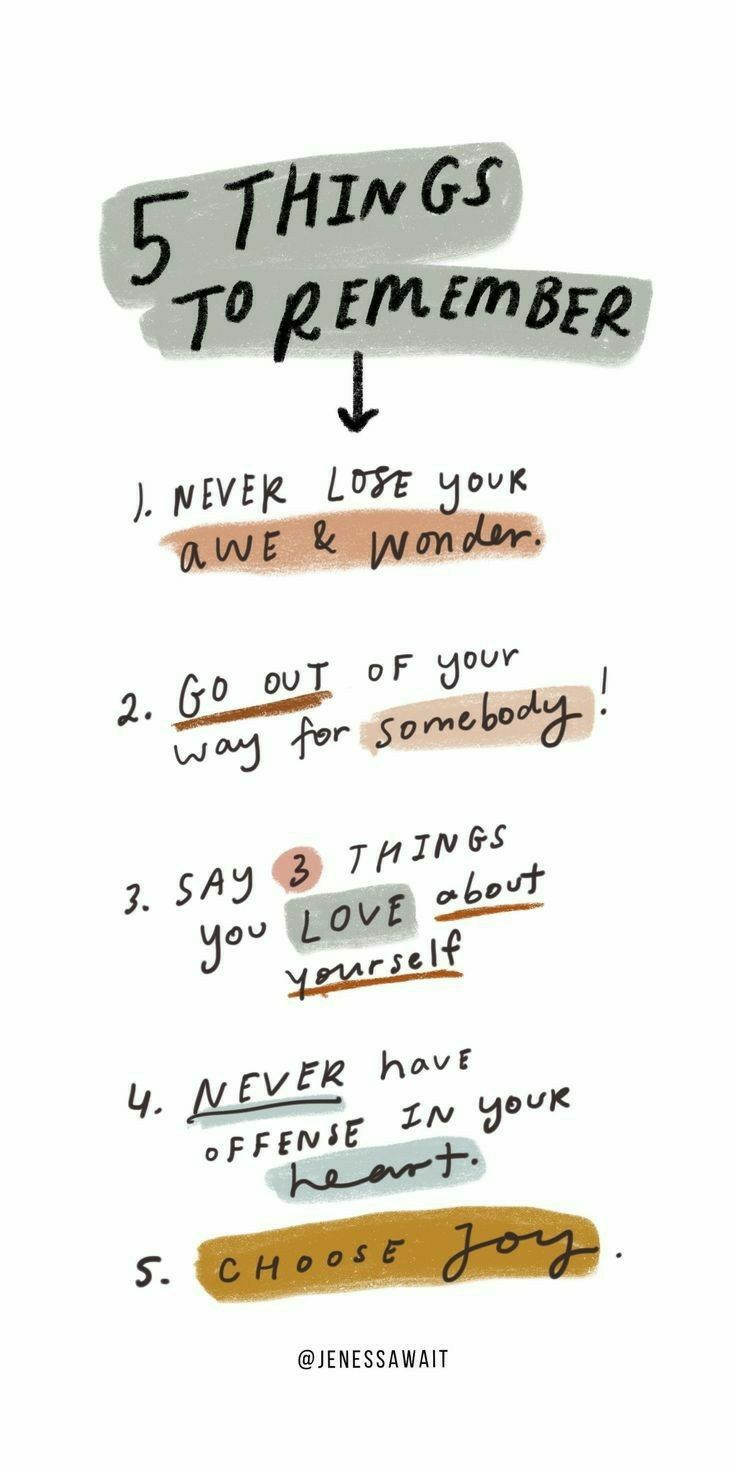 5 THINGS
TO REMEMBER
1. NEVER LOSE YOUR
AWE & Wonder.
2. GO OUT OF your
way for somebody!
3. SAY 3 THINGS
you LOVE about
yourself
4. NEVER have
OFFENSE IN YOUR
heart.
5. CHOOSE Joy.
@JENESSAWAIT